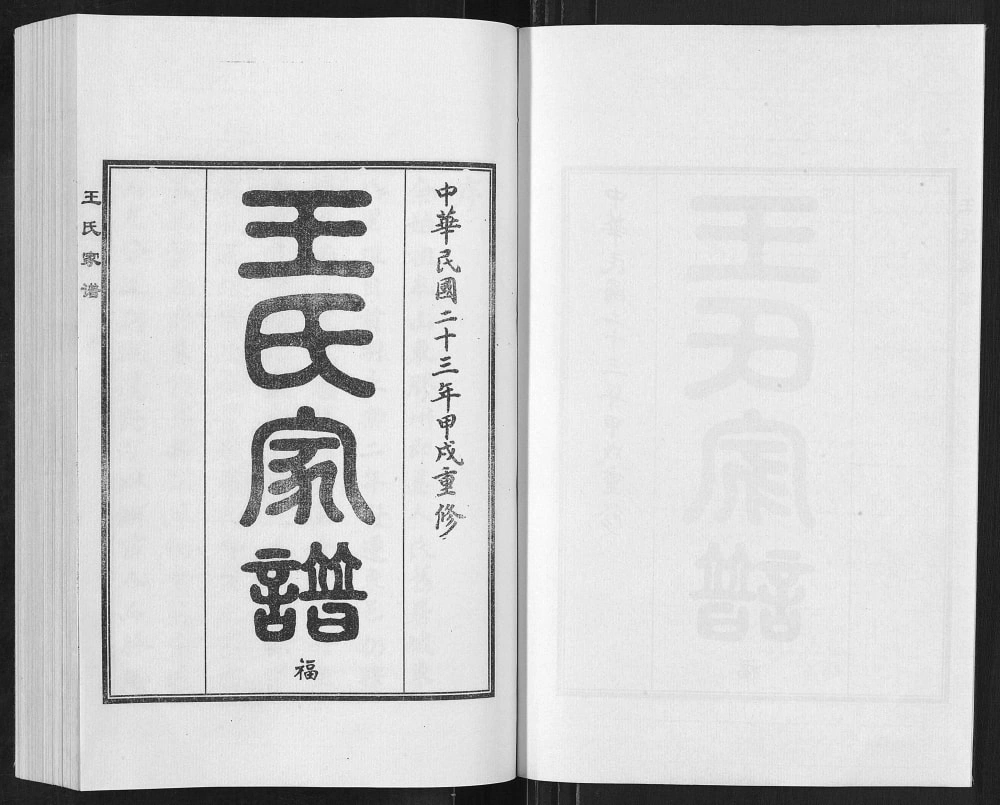 中華民國二十三年甲戌重修
王氏家譜
福
王氏家譜